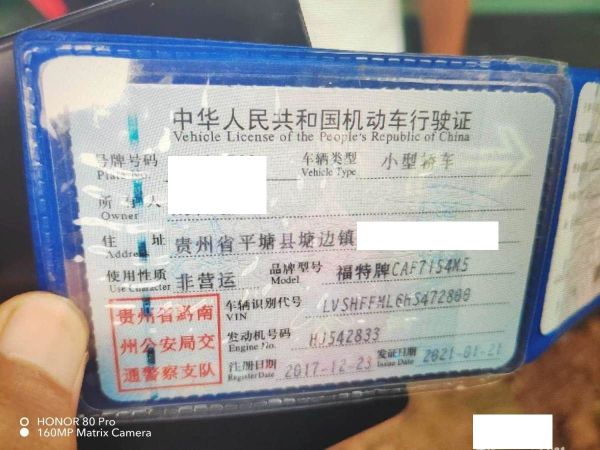 中华人民共和国机动车行驶证
Vehicle License of the People's Republic of China
号牌号码
Plate No.
车辆类型 小型轿车
Vehicle Type
所有人
Owner
住 址 贵州省平塘县塘边镇
Address
使用性质 非营运
Use Character
品牌型号 福特牌CAF7154M5
Model
贵州省黔南
州公安局交
通警察支队
车辆识别代号
VIN
发动机号码 HJ542833
Engine No.
注册日期 2017-12-23
Register Date
发证日期 2021-01-21
Issue Date
HONOR 80 Pro
160MP Matrix Camera